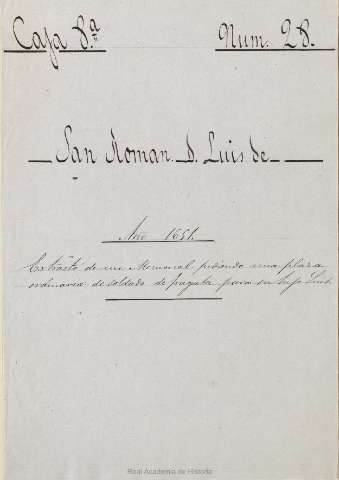 Caja 8.ª Num. 28.
San Roman. D. Luis de
Año 1651.
Extracto de un Memorial pidiendo una plaza
ordinaria de soldado de fragata para su hijo Luis
Real Academia de Historia